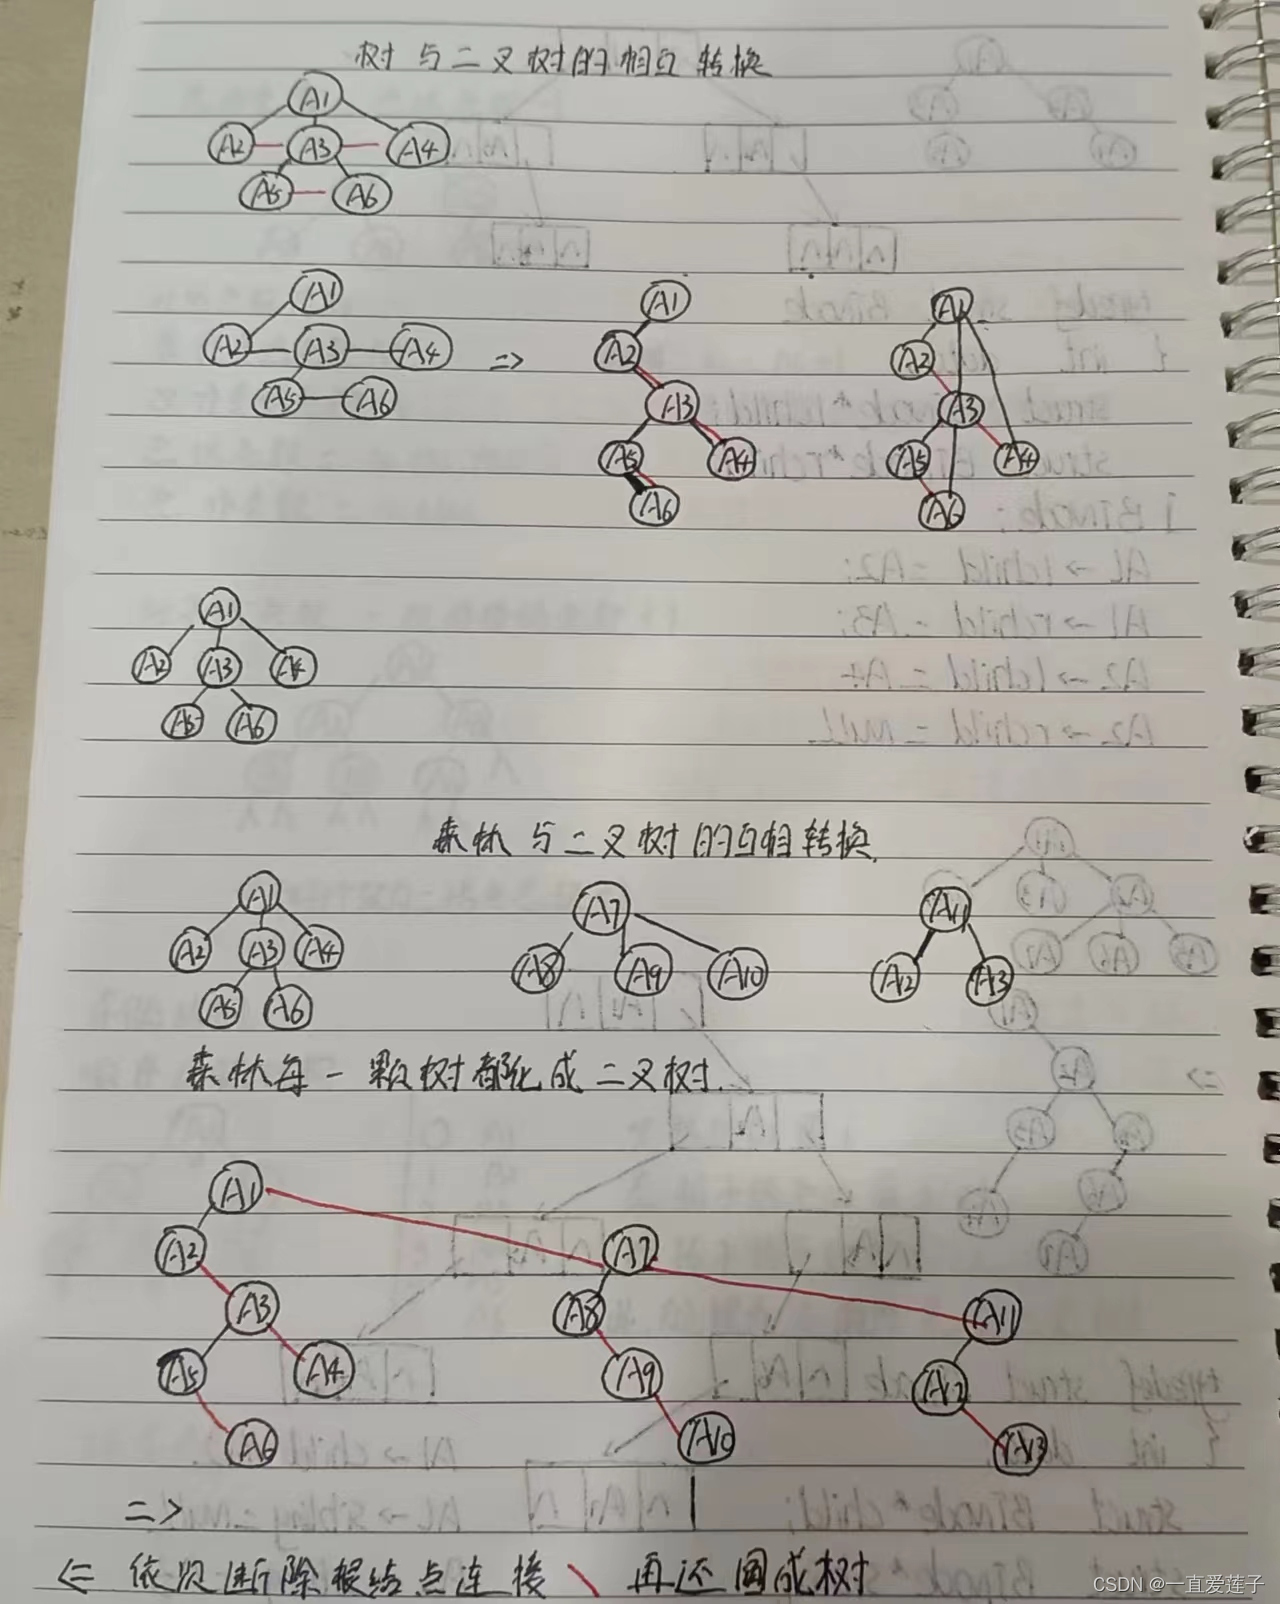 树与二叉树的相互转换
A1
A2 A3 A4
A5 A6
A1 A1 A1
A2 A3 A4 => A2 A2
A5 A6 A3 A3
A5 A4 A5 A4
A6 A6
A1
A2 A3 A4
A5 A6
森林与二叉树的互相转换
A1 A7 A11
A2 A3 A4 A8 A9 A10 A12 A13
A5 A6
森林每一颗树都化成二叉树.
A1
A2 A7
A3 A8 A11
A5 A4 A9 A12
A6 A10 A13
=>
<= 依次断除根结点连接 \ 再还原成树
CSDN @一直爱莲子